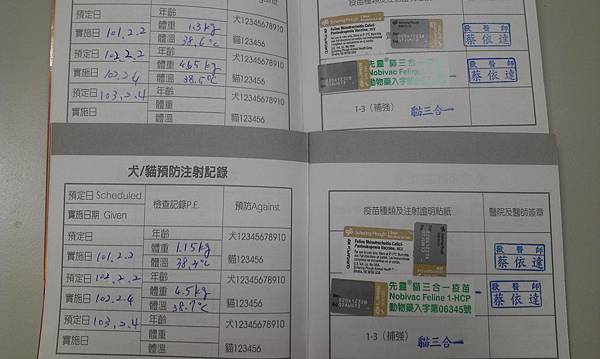 預定日
年齡
犬12345678910
實施日 101.2.2
體重 1.3kg
體溫 38.6℃
貓123456
Schering-Plough
Feline Rhinotracheitis-Calici-
Panleukopenia Vaccine, MLV
獸醫師
蔡依達
預定日 102.2.2
年齡
犬12345678910
實施日 102.2.4
體重 4.65kg
體溫 38.5℃
貓123456
先靈®貓三合一疫苗
Nobivac Feline
動物藥入字第
獸醫師
蔡依達
預定日 103.2.4
年齡
犬12345678910
實施日
體重
體溫
貓123456
1-3 (補強) 貓三合一
犬/貓預防注射記錄
預定日 Scheduled
實施日期 Given
檢查記錄P.E.
預防Against
疫苗種類及注射證明貼紙
醫院及醫師簽章
預定日
年齡
犬12345678910
實施日 101.2.2
體重 1.15kg
體溫 38.7℃
貓123456
Schering-Plough
Feline Rhinotracheitis-Calici-
Panleukopenia Vaccine, MLV
獸醫師
蔡依達
預定日 102.2.2
年齡
犬12345678910
實施日 102.2.4
體重 4.5kg
體溫 38.7℃
貓123456
先靈®貓三合一疫苗
Nobivac Feline 1-HCP
動物藥入字第06345號
獸醫師
蔡依達
預定日 103.2.4
年齡
犬12345678910
實施日
體重
體溫
貓123456
1-3 (補強) 貓三合一